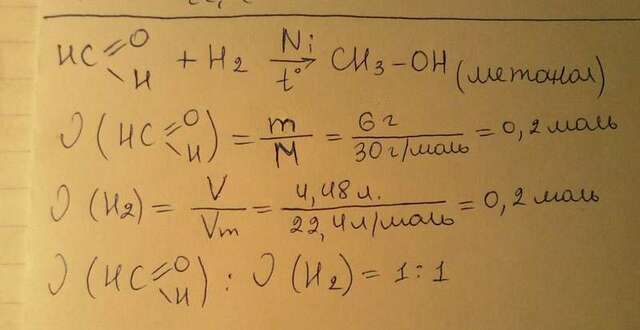 HC=O–H + H2 Ni→t° CH3–OH (метанол)
ν (HC=O–H) = m/M = 6 г/30 г/моль = 0,2 моль
ν (H2) = V/Vm = 4,48 л./22,4 л/моль = 0,2 моль
ν (HC=O–H) : ν (H2) = 1:1